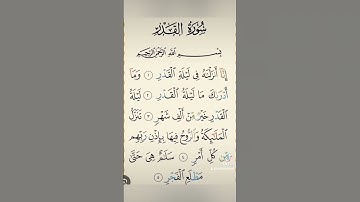 سُورَةُ الْقَدْرِ
بِسْمِ اللَّهِ الرَّحْمَٰنِ الرَّحِيمِ
إِنَّا أَنزَلْنَٰهُ فِى لَيْلَةِ الْقَدْرِ ١ وَمَا
أَدْرَىٰكَ مَا لَيْلَةُ الْقَدْرِ ٢ لَيْلَةُ
الْقَدْرِ خَيْرٌ مِّنْ أَلْفِ شَهْرٍ ٣ تَنَزَّلُ
الْمَلَٰٓئِكَةُ وَالرُّوحُ فِيهَا بِإِذْنِ رَبِّهِم
مِّن كُلِّ أَمْرٍ ٤ سَلَٰمٌ هِىَ حَتَّىٰ
مَطْلَعِ الْفَجْرِ ٥